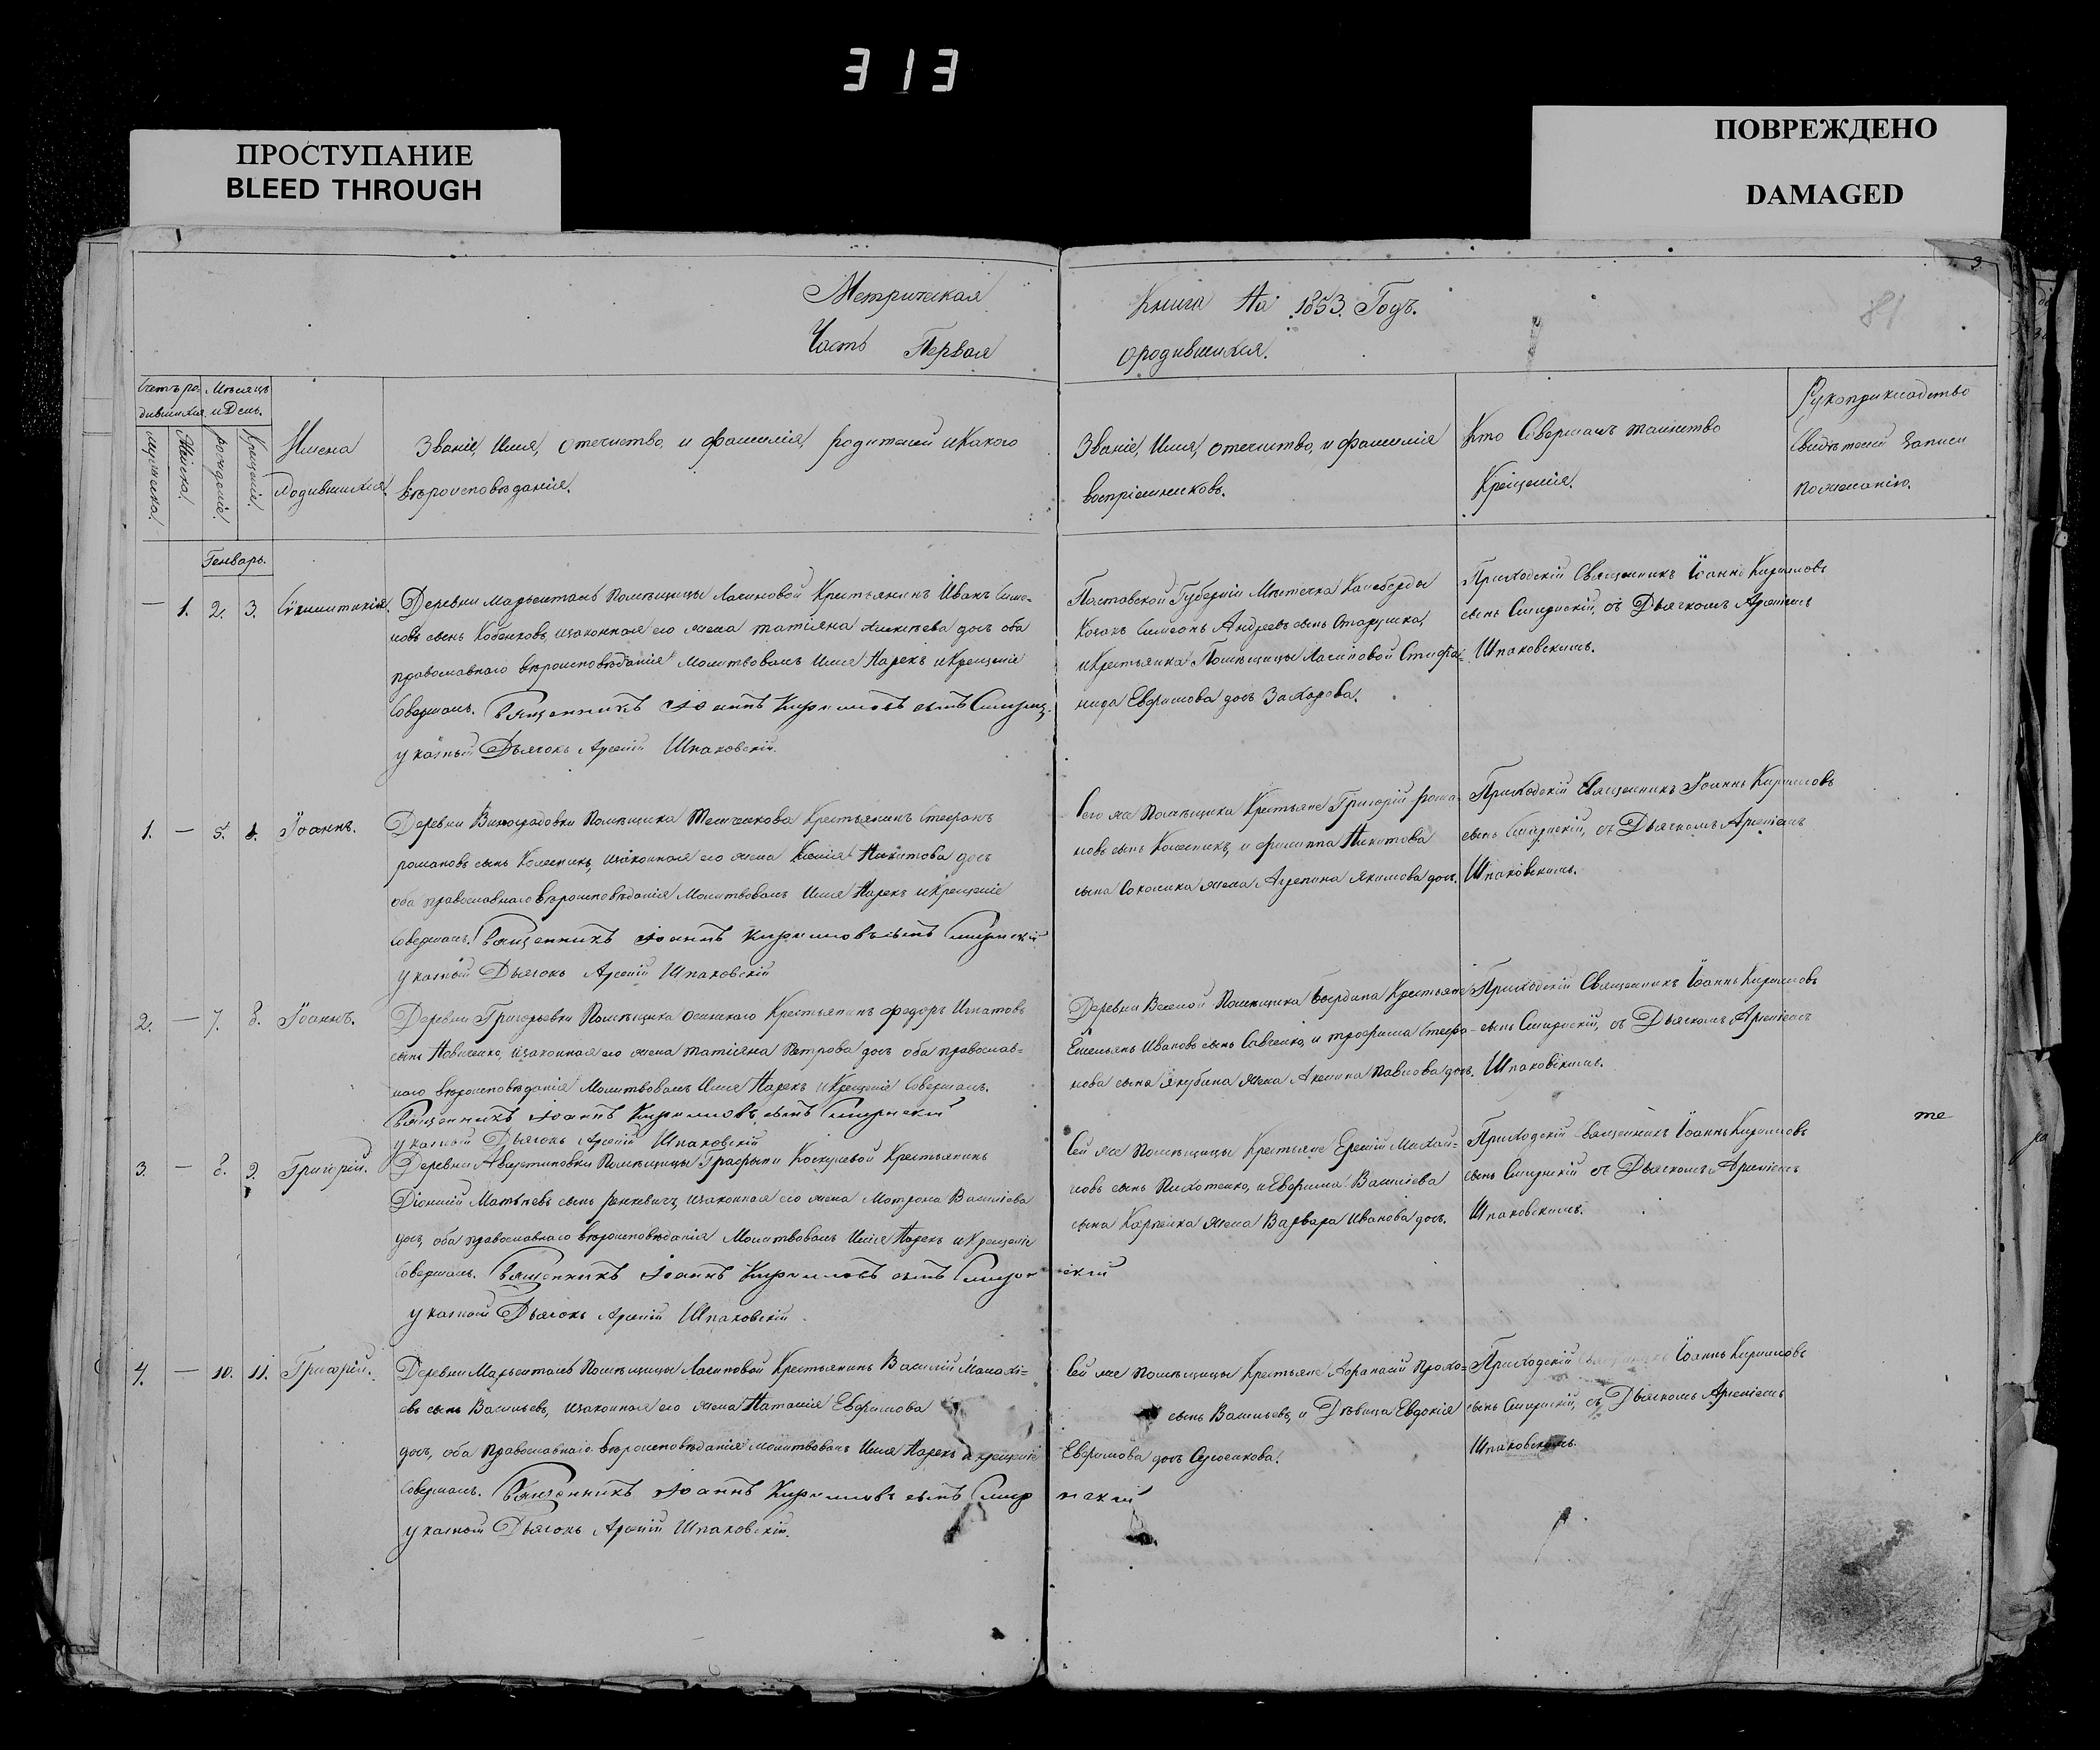 313
ПРОСТУПАНИЕ
BLEED THROUGH
ПОВРЕЖДЕНО
DAMAGED
3
81
Метрическая Книга На 1853. Годъ.
Часть Первая ородившихся.
Счетъ ро-
дившихся
Мѣсяцъ
и День.
мужеска.
Женска.
рожденіе.
Крещеніе.
Имена
Родившихся.
Званіе, Имя, отечество, и фамилія, родителей и Какого
вѣроисповѣданія.
Званіе, Имя, отечество, и фамилія
воспріемниковъ.
Кто Совершалъ таинство
Крещенія.
Рукоприкладство
Свидѣтелей Записи
по желанію.
Генварь.
— 1. 2. 3.
Деревни Помѣщицы Лашновой Крестьянинъ Иванъ Симе-
новъ сынъ Кобенковъ, изаконная его жена татіяна Алексѣева дочь оба
православнаго вѣроисповѣданія Молитвовалъ Имя Нарекъ и Крещеніе
Совершалъ. Священникъ Іоаннъ Кирилловъ сынъ
указный Дьячокъ Арсеній Шпаковскій.
Полтавской Губерніи Мѣстечка Келеберды
Козакъ Симеонъ Андреевъ сынъ Старушка,
и Крестьянка Помѣщицы Стефа-
нида Евфимова дочь Захарова.
Приходскій Священникъ Іоаннъ Кирилловъ
сынъ Смирнскій, съ Дьячкомъ Арсеніемъ
Шпаковскимъ.
1. — 5. Іоаннъ.
Деревни Виноградовки Помѣщика Крестьянинъ Стефанъ
романовъ сынъ Колесникъ, изаконная его жена Никитова дочь
оба православнаго вѣроисповѣданія Молитвовалъ Имя Нарекъ и Крещеніе
Совершалъ. Священникъ Іоаннъ Кирилловъ сынъ Смирнскій
указный Дьячокъ Арсеній Шпаковскій
Сего же Помѣщика Крестьяне Григорій рома-
новъ сынъ Колесникъ, и филиппа Никитова
сына Соколика жена Агрепина Якимова дочь.
Приходскій Священникъ Іоаннъ Кирилловъ
сынъ Смирнскій, съ Дьячкомъ Арсеніемъ
Шпаковскимъ.
2. — 7. 8. Іоаннъ.
Деревни Григорьевки Помѣщика Крестьянинъ федоръ Игнатовъ
сынъ изаконная его жена татіяна Петрова дочь оба православ-
наго вѣроисповѣданія Молитвовалъ Имя Нарекъ и Крещеніе Совершалъ.
Священникъ Іоаннъ Кирилловъ сынъ Смирнскій
указный Дьячокъ Арсеній Шпаковскій
Деревни Веселой Помѣщика Крестьяне
Емельянъ Ивановъ сынъ Савченко, и трофима Стефа-
нова сына Якубина жена Акелина Павлова дочь.
Приходскій Священникъ Іоаннъ Кирилловъ
сынъ Смирнскій, съ Дьячкомъ Арсеніемъ
Шпаковскимъ.
те
3. — 8. 9. Григорій.
Деревни Августиновки Помѣщицы Графини Крестьянинъ
Діонисій Матѣевъ сынъ изаконная его жена Матрона Василіева
дочь, оба православнаго вѣроисповѣданія Молитвовалъ Имя Нарекъ и Крещеніе
Совершалъ. Священникъ Іоаннъ Кирилловъ сынъ Смирнскій
указный Дьячокъ Арсеній Шпаковскій
Сей же Помѣщицы Крестьяне Еремій Михаи-
ловъ сынъ Пихотенко, и Евфима Василіева
сына жена Варвара Иванова дочь.
Приходскій Священникъ Іоаннъ Кирилловъ
сынъ Смирнскій съ Дьячкомъ Арсеніемъ
Шпаковскимъ.
4. — 10. 11. Григорій.
Деревни Помѣщицы Крестьянинъ Василій Малахі-
евъ сынъ Васильевъ, изаконная его жена Наталія Евфимова
дочь, оба Православнаго вѣроисповѣданія молитвовалъ Имя Нарекъ и крещеніе
Совершалъ. Священникъ Іоаннъ Кирилловъ сынъ Смирнскій
указный Дьячокъ Арсеній Шпаковскій.
Сей же Помѣщицы Крестьяне Афанасій
сынъ Васильевъ, и Дѣвица Евдокія
Евфимова дочь
Приходскій Іоаннъ Кирилловъ
сынъ Смирнскій, съ Дьячкомъ Арсеніемъ
Шпаковскимъ.